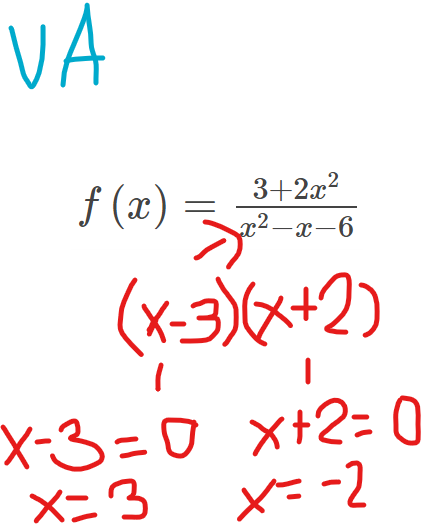 VA
f(x) = \frac{3+2x^2}{x^2-x-6}
(x-3)(x+2)
x-3=0 x+2=0
x=3 x=-2